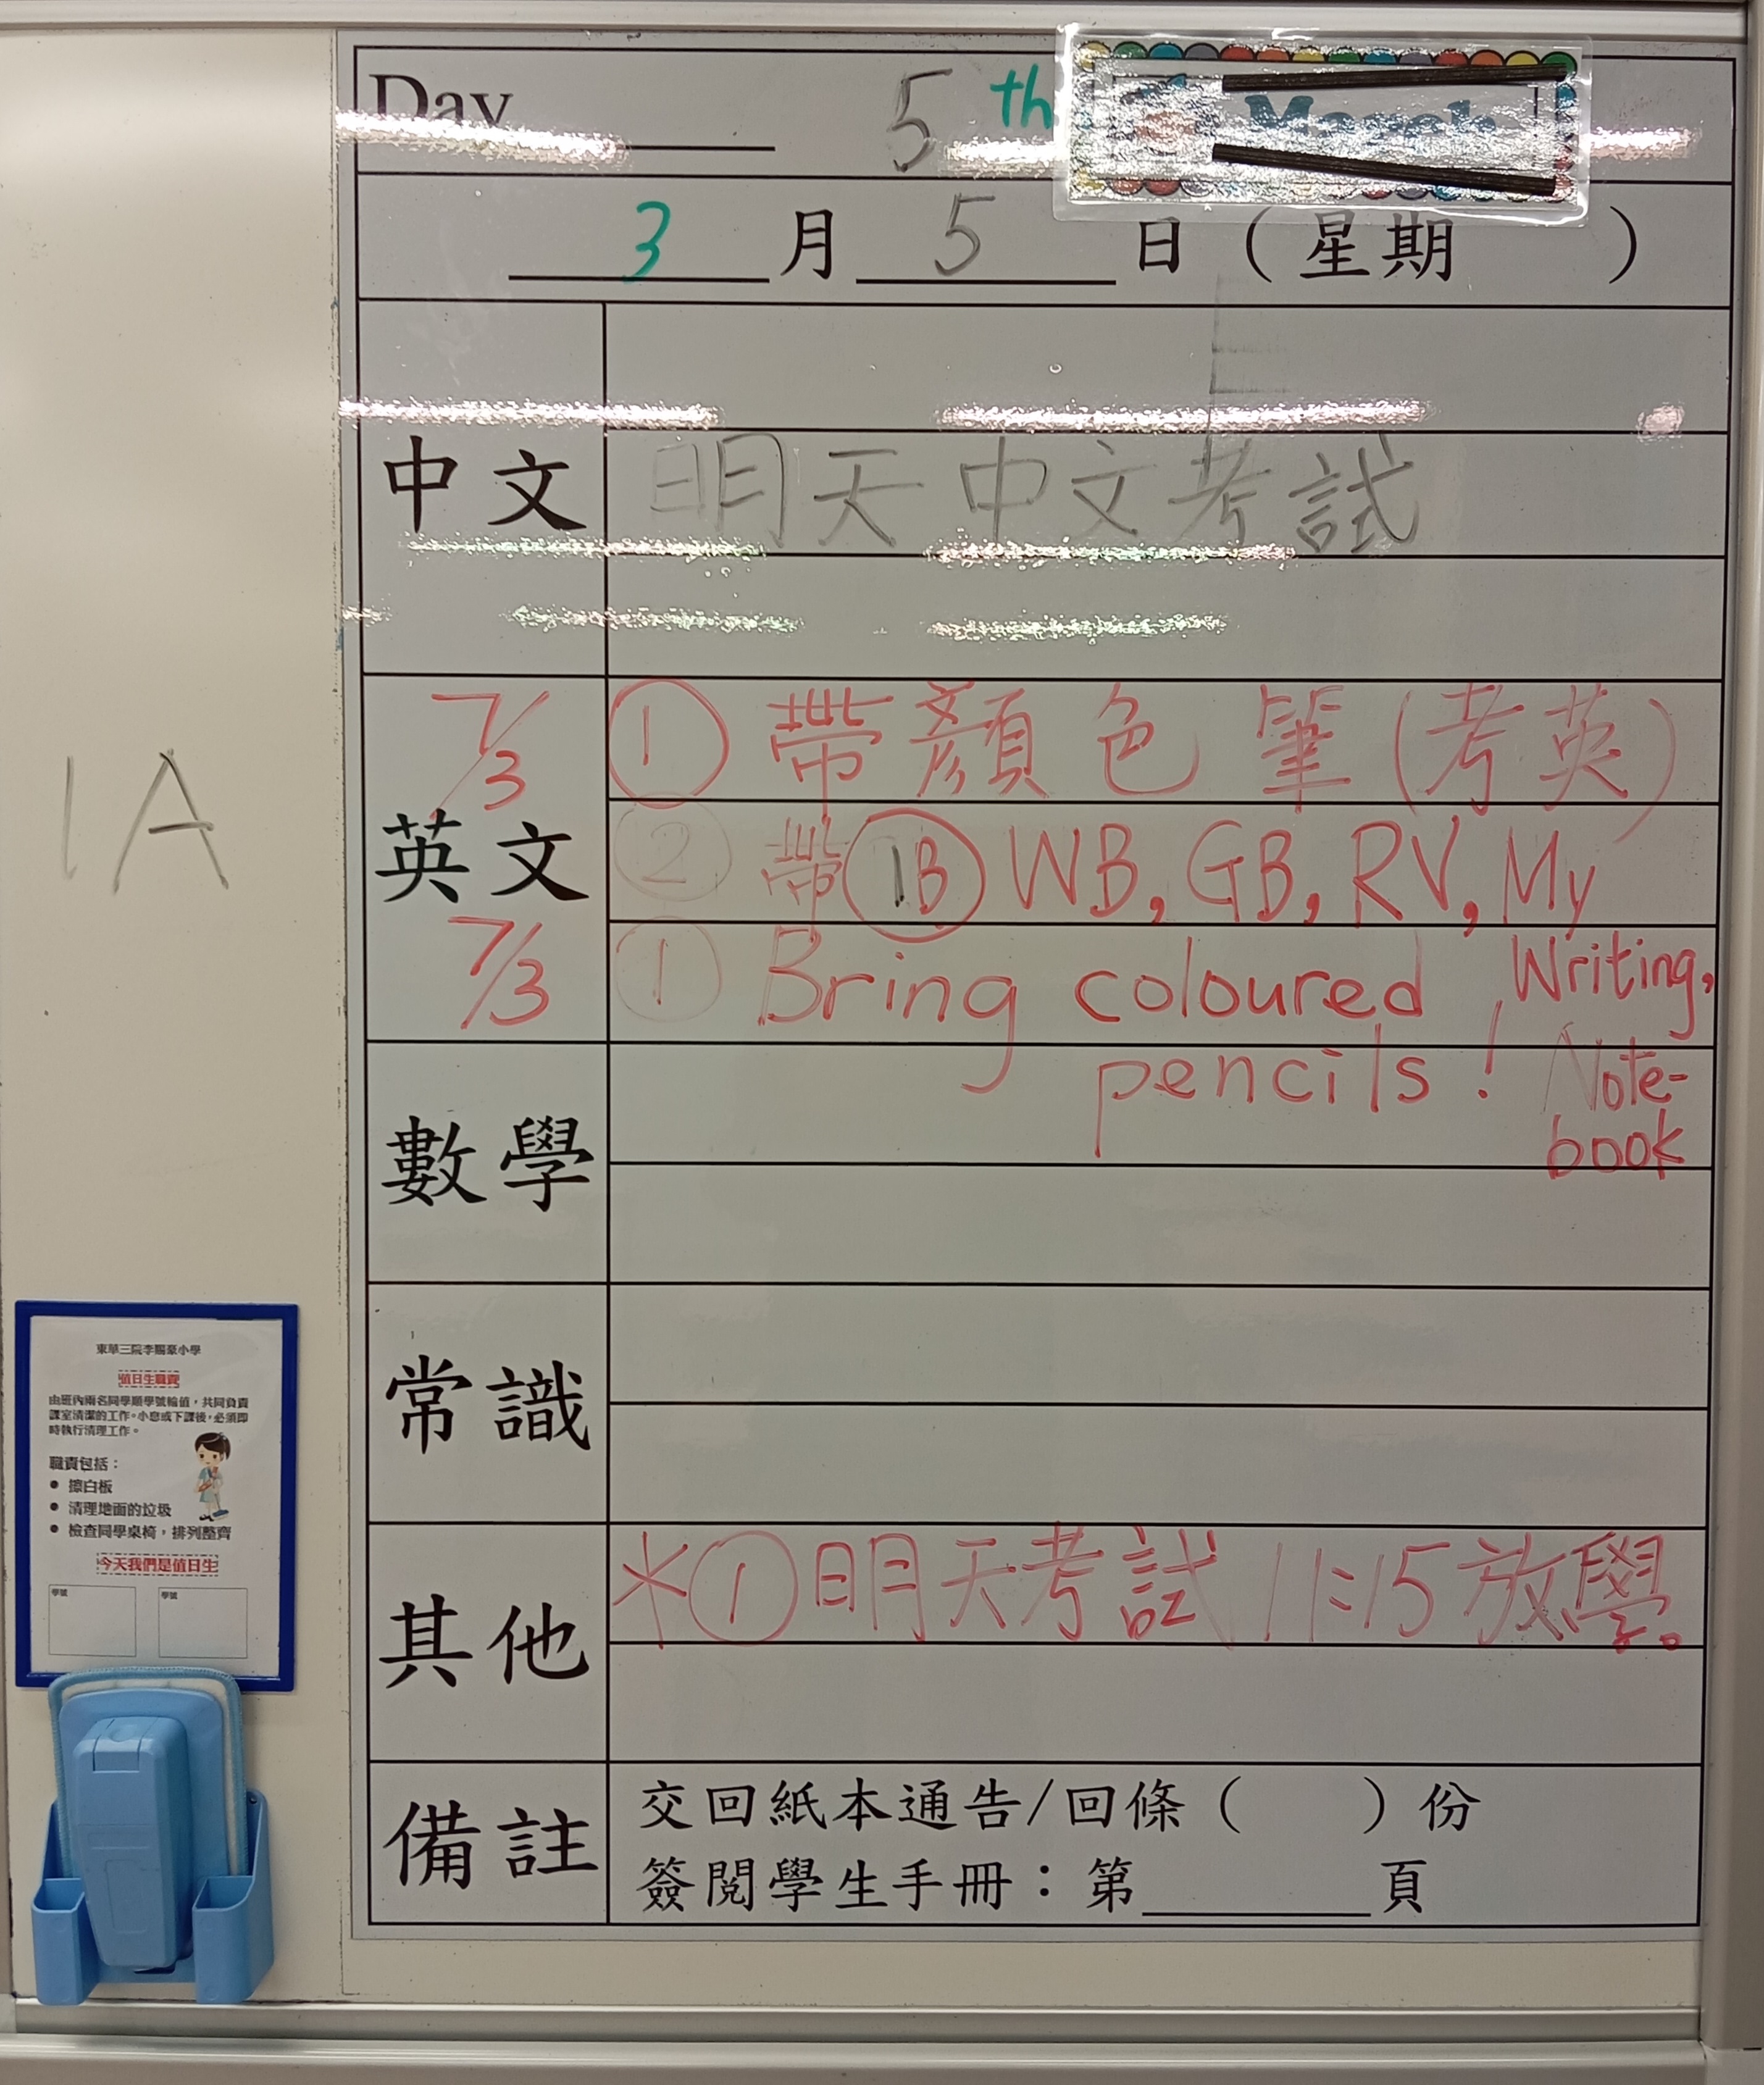 Day 5 th March
3 月 5 日 ( 星期 )
中文 明天中文考試
7/3 ① 帶顏色筆(考英)
英文 ② 帶 1B WB, GB, RV, My Writing, Note-book
7/3 ① Bring coloured pencils!
數學
常識
其他 * ① 明天考試 11:15 放學。
備註 交回紙本通告/回條 ( ) 份
簽閱學生手冊：第 頁
1A
東華三院李賜豪小學
值日生職責
由班內兩名同學順學號輪值，共同負責
課室清潔的工作。小息或下課後，必須即
時執行清理工作。
職責包括：
● 擦白板
● 清理地面的垃圾
● 檢查同學桌椅，排列整齊
今天我們是值日生
學號 學號